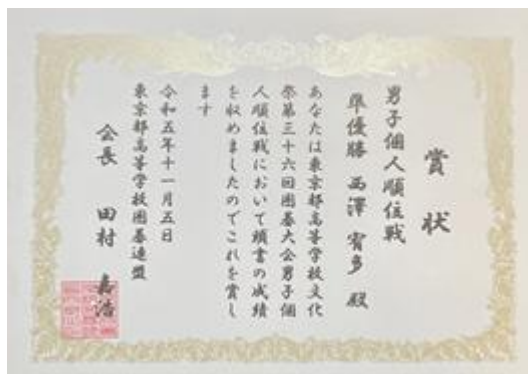 賞状
男子個人順位戦
準優勝 西澤 宥多 殿
あなたは東京都高等学校文化
祭第三十六回囲碁大会男子個
人順位戦において頭書の成績
を収めましたのでこれを賞し
ます
令和五年十一月五日
東京都高等学校囲碁連盟
会長 田村 嘉浩